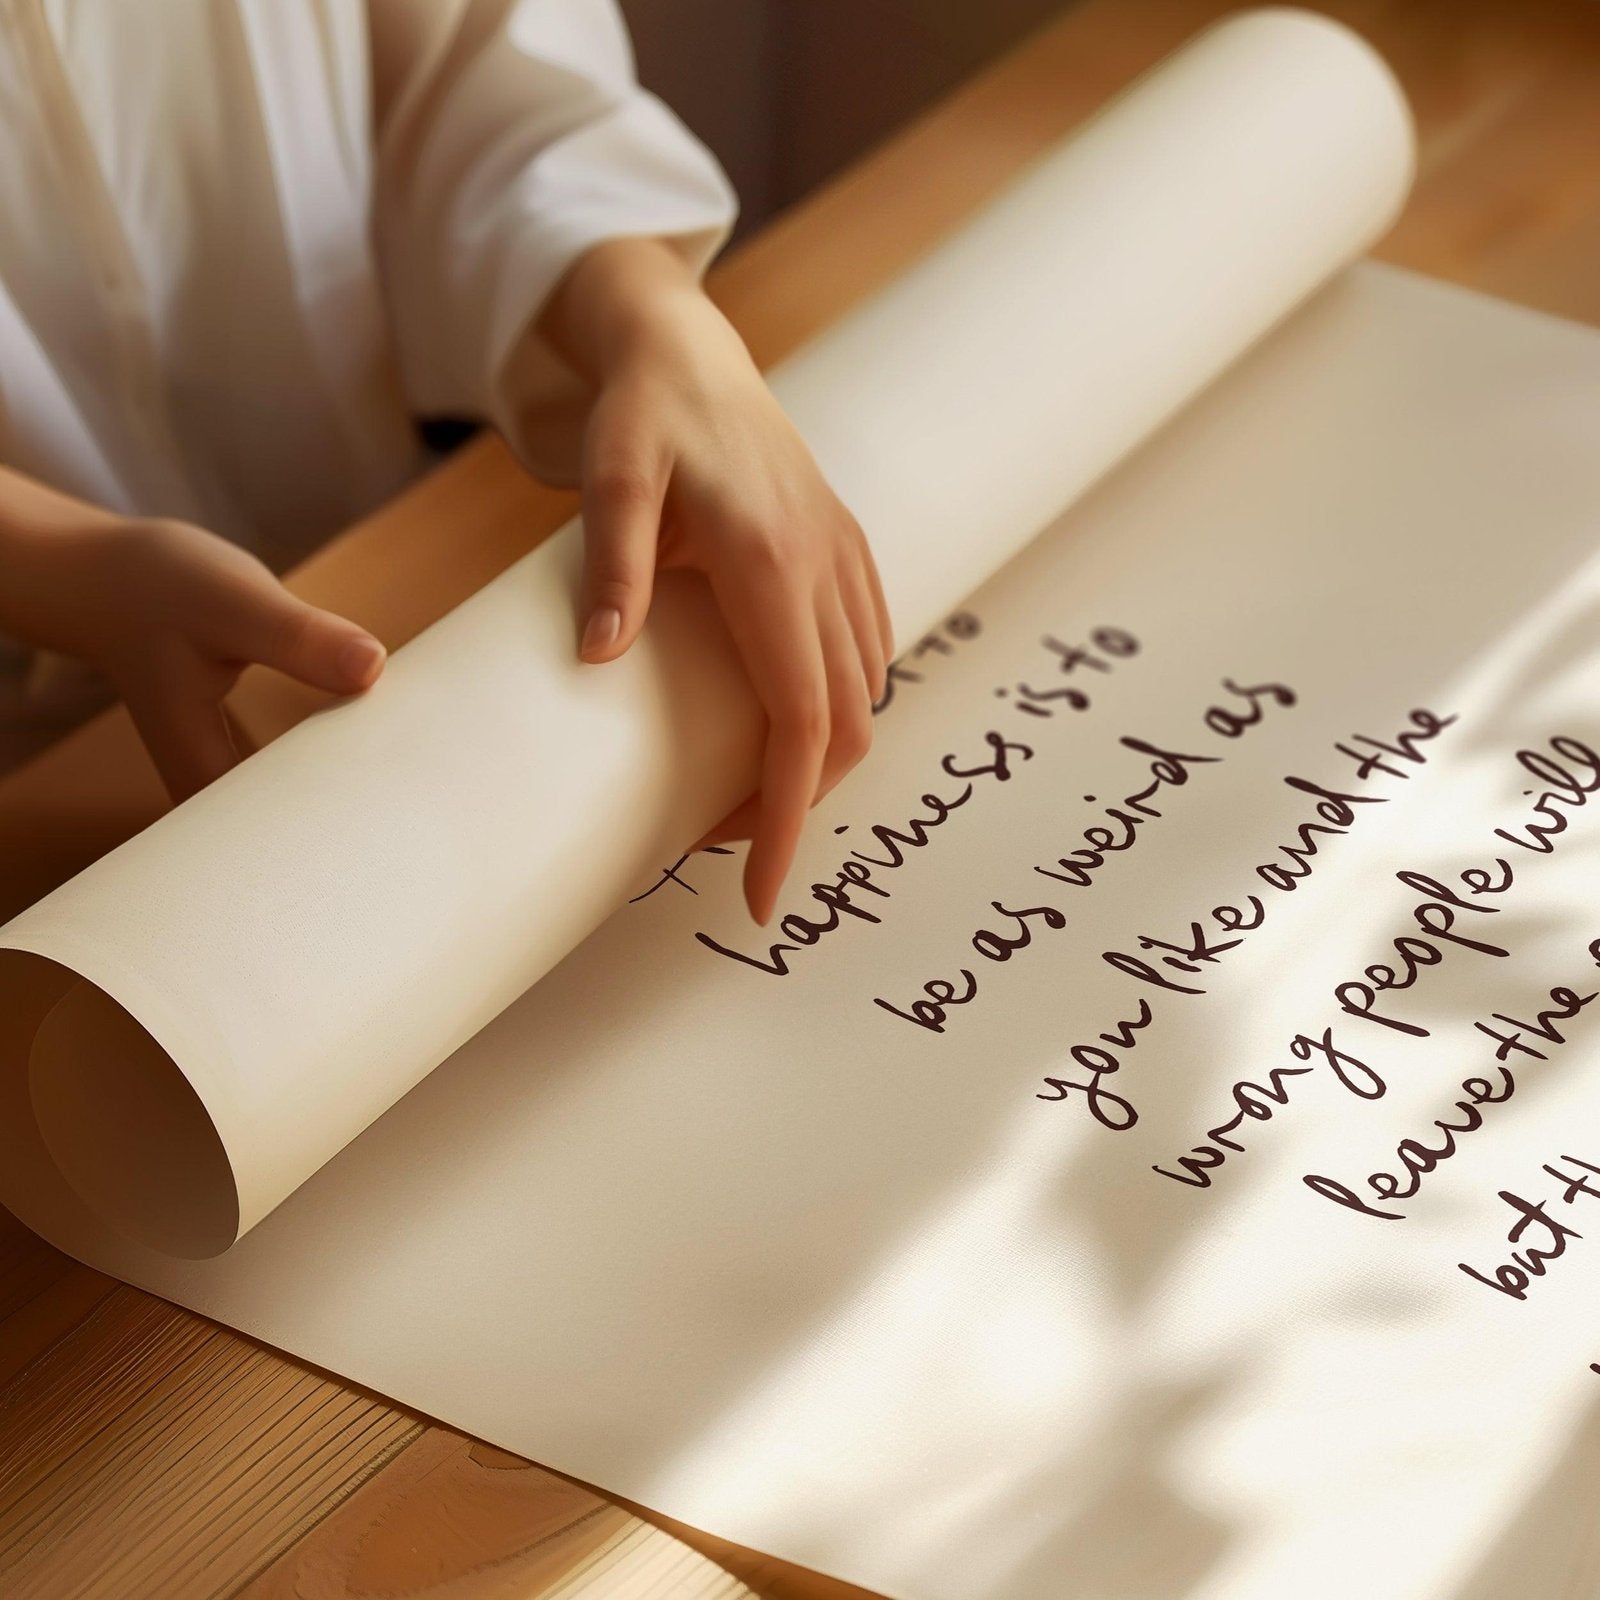 to
happiness is to
be as weird as
you like and the
wrong people will
leave the
but